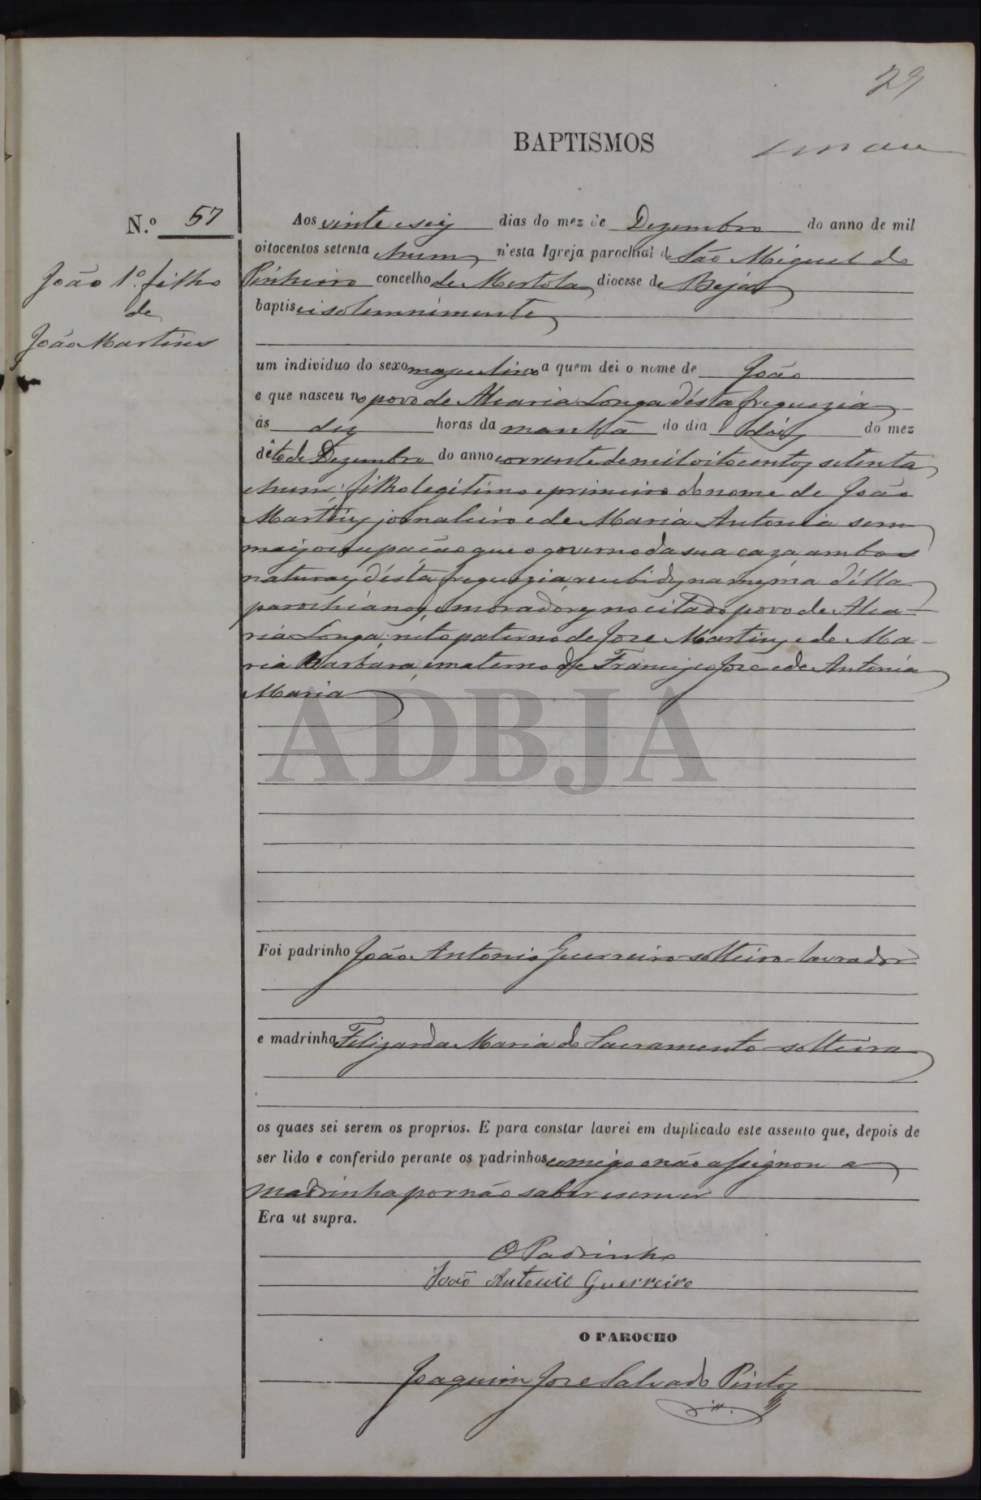 29
BAPTISMOS
N.º 57
João 1.º filho
de
João Martins
Aos vinte e seis dias do mez de Dezembro do anno de mil
oitocentos setenta e hum n'esta Igreja parochial de São Miguel do
Pinheiro concelho de Mertola diocese de Beja
baptisei solemnimente
um individuo do sexo masculino a quem dei o nome de João
e que nasceu no povo de Alcaria Longa désta freguezia
ás dez horas da manhã do dia dois do mez
dito de Dezembro do anno corrente de mil oito centos setenta
e hum: filho legitimo e primeiro do nome de João
Martins jornaleiro e de Maria Antonia sem
mais occupação que o governo da sua caza ambos
naturaes désta freguezia, recebidos na mesma délla
parochianos, e moradores no citado povo de Alca-
ria Longa: neto paterno de Joze Martins, e de Ma-
ria Barbara, e materno de Francisco Joze e de Antonia
Maria
ADBJA
Foi padrinho João Antonio Guerreiro solteiro lavrador
e madrinha Felizarda Maria do Sacramento solteira
os quaes sei serem os proprios. E para constar lavrei em duplicado este assento que, depois de
ser lido e conferido perante os padrinhos comigo e não assignou a
Madrinha por não saber escrever
Era ut supra.
O Padrinho
João Antonio Guerreiro
O PAROCHO
Joaquim Joze Salvado Pinto